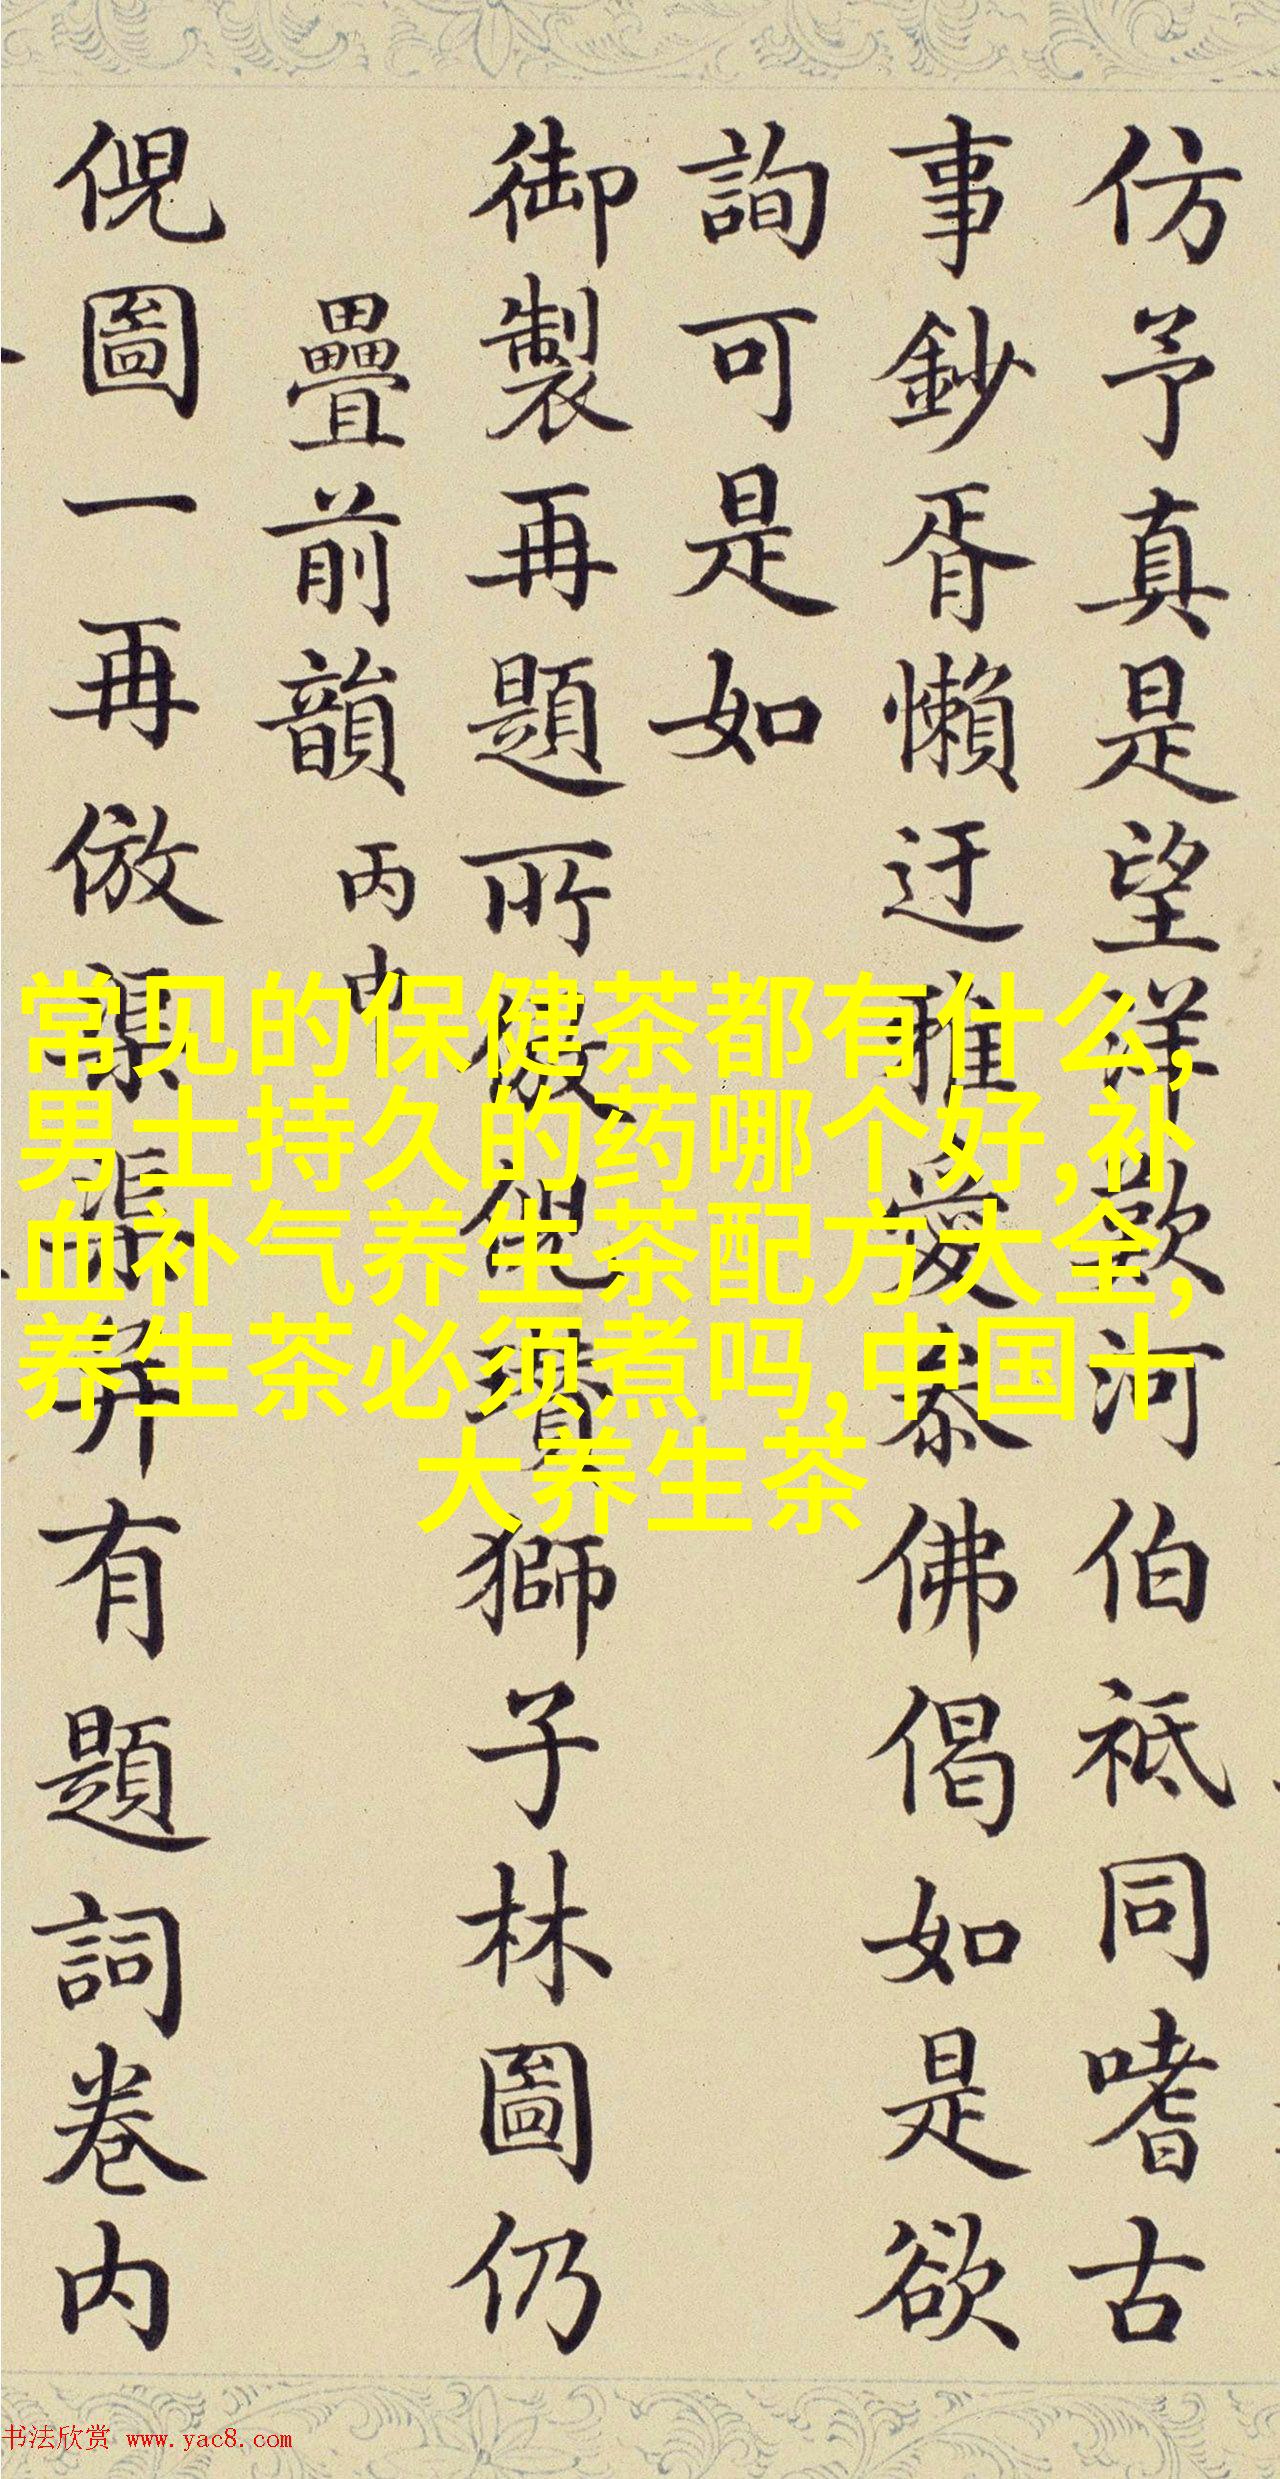 仿予真是望洋歎河伯祗同嗜古
事鈔胥懶迂雅愛泰佛偈如是欲
詢可是如
御製再題所倣倪瓚獅子林圖仍
疊前韻 丙申
倪圖一再倣渠弆有題詞卷内
常见的保健茶都有什么,
男士持久的药哪个好,补
血补气养生茶配方大全,
养生茶必须煮吗,中国十
大养生茶
书法欣赏 www.yac8.com